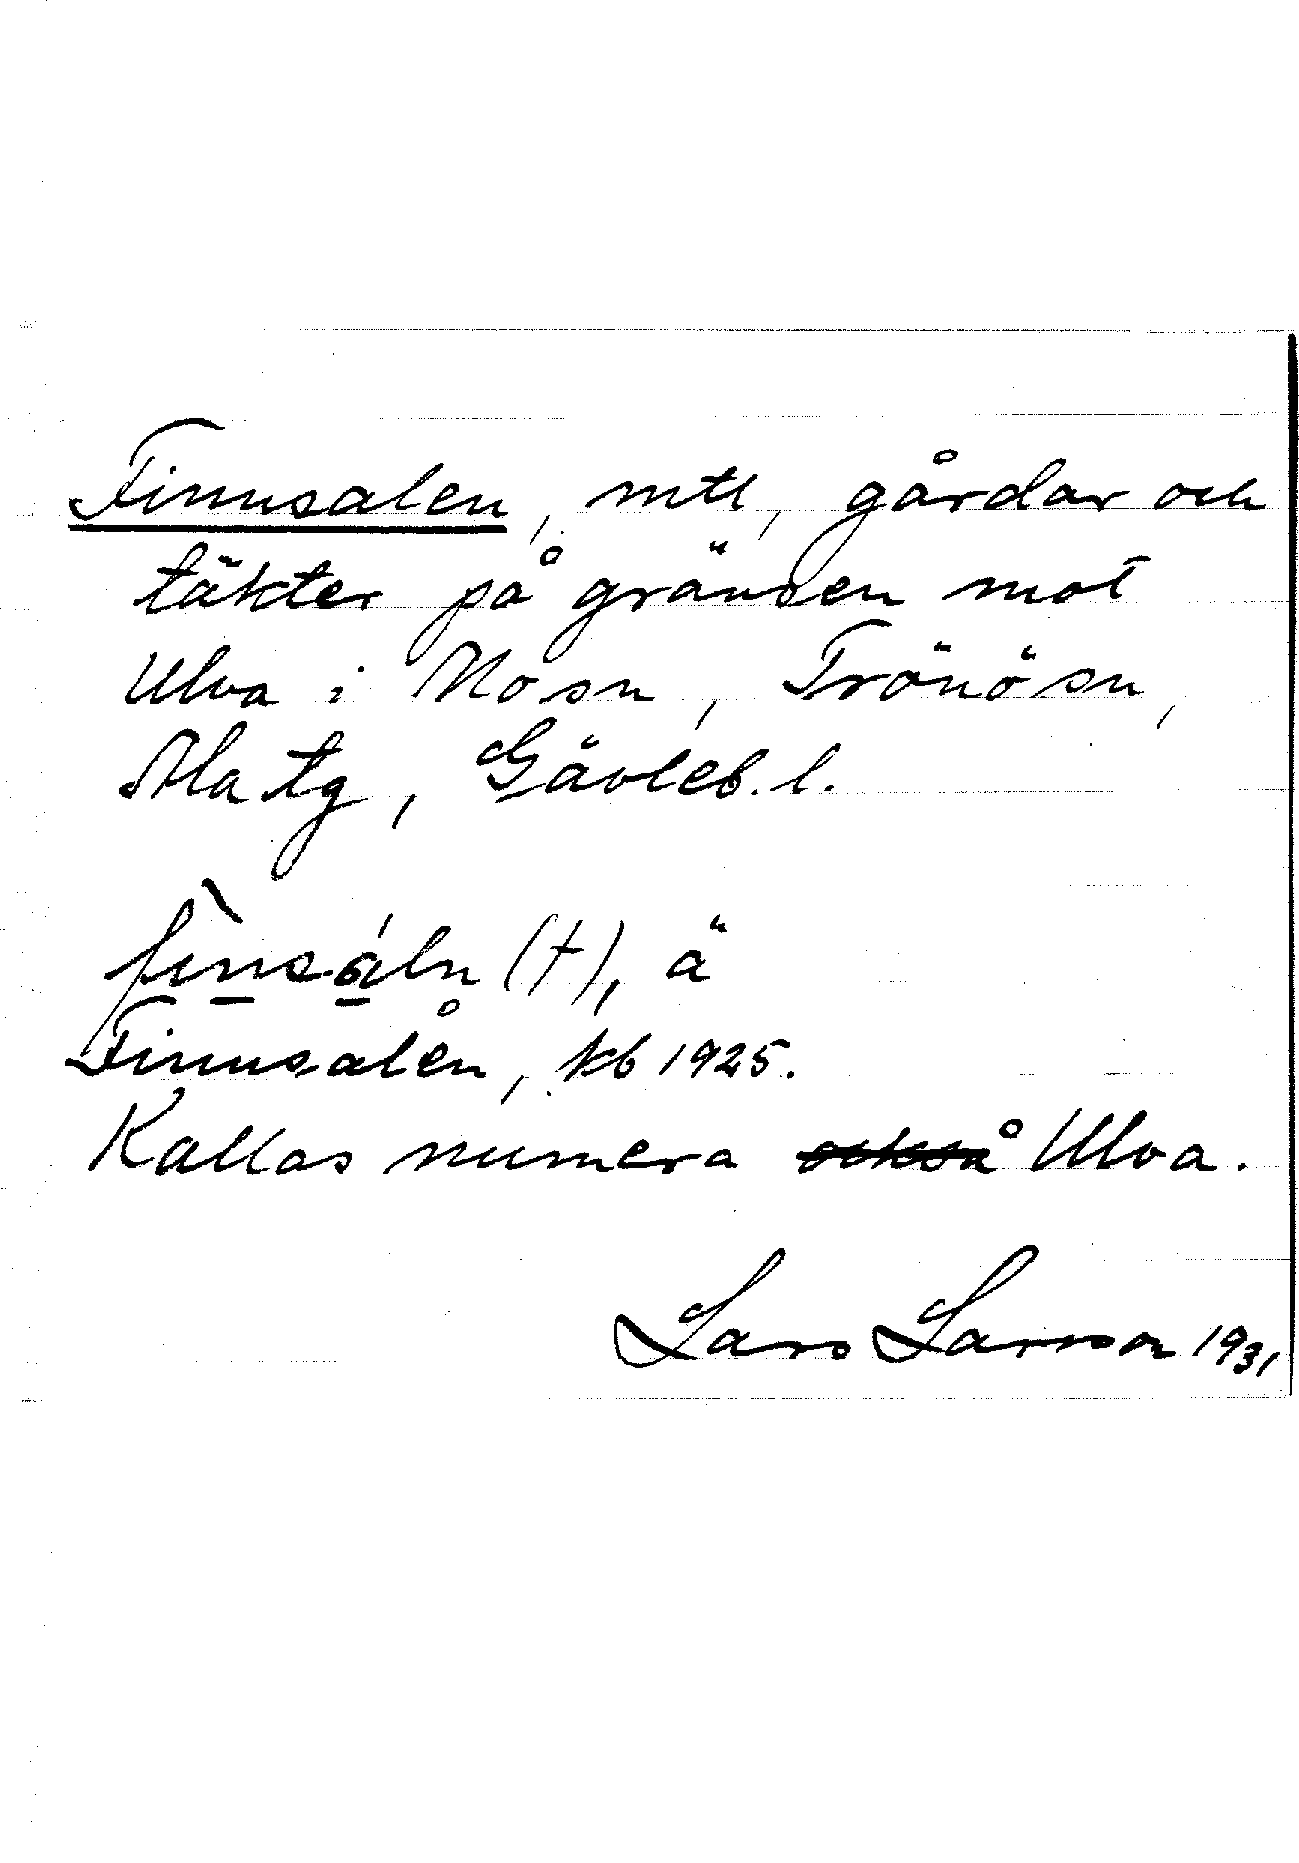 Finnsalen, mtl, gårdar och
täkter på gränsen mot
Ulva i Mo sn, Trönö sn,
Ala tg, Gävleb. l.
(t), ä
Finnsalen, kb 1925.
Kallas numera också Ulva.
Lars Larsson 1931